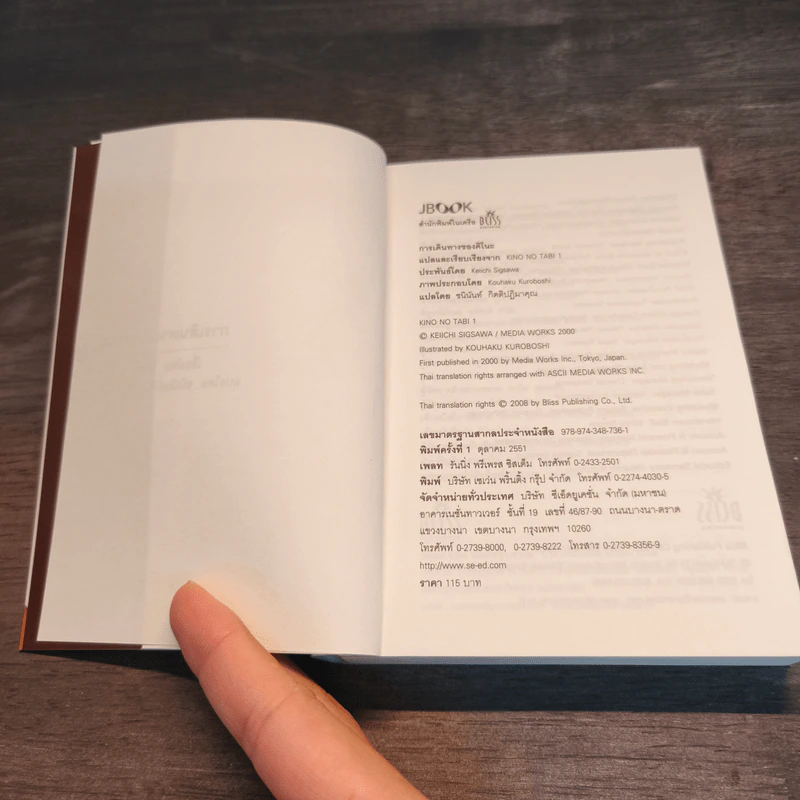 JBOOK
สำนักพิมพ์ในเครือ BLISS
การเดินทางของคิโนะ
แปลและเรียบเรียงจาก KINO NO TABI 1
ประพันธ์โดย Keiichi Sigsawa
ภาพประกอบโดย Kouhaku Kuroboshi
แปลโดย ชนินันท์ กิตติปฏิมาคุณ
KINO NO TABI 1
© KEIICHI SIGSAWA / MEDIA WORKS 2000
Illustrated by KOUHAKU KUROBOSHI
First published in 2000 by Media Works Inc., Tokyo, Japan.
Thai translation rights arranged with ASCII MEDIA WORKS INC.
Thai translation rights © 2008 by Bliss Publishing Co., Ltd.
เลขมาตรฐานสากลประจำหนังสือ 978-974-348-736-1
พิมพ์ครั้งที่ 1 ตุลาคม 2551
เพลท รันนิ่ง พรีเพรส ซิสเต็ม โทรศัพท์ 0-2433-2501
พิมพ์ บริษัท เซเว่น พริ้นติ้ง กรุ๊ป จำกัด โทรศัพท์ 0-2274-4030-5
จัดจำหน่ายทั่วประเทศ บริษัท ซีเอ็ดยูเคชั่น จำกัด (มหาชน)
อาคารเนชั่นทาวเวอร์ ชั้นที่ 19 เลขที่ 46/87-90 ถนนบางนา-ตราด
แขวงบางนา เขตบางนา กรุงเทพฯ 10260
โทรศัพท์ 0-2739-8000, 0-2739-8222 โทรสาร 0-2739-8356-9
http://www.se-ed.com
ราคา 115 บาท